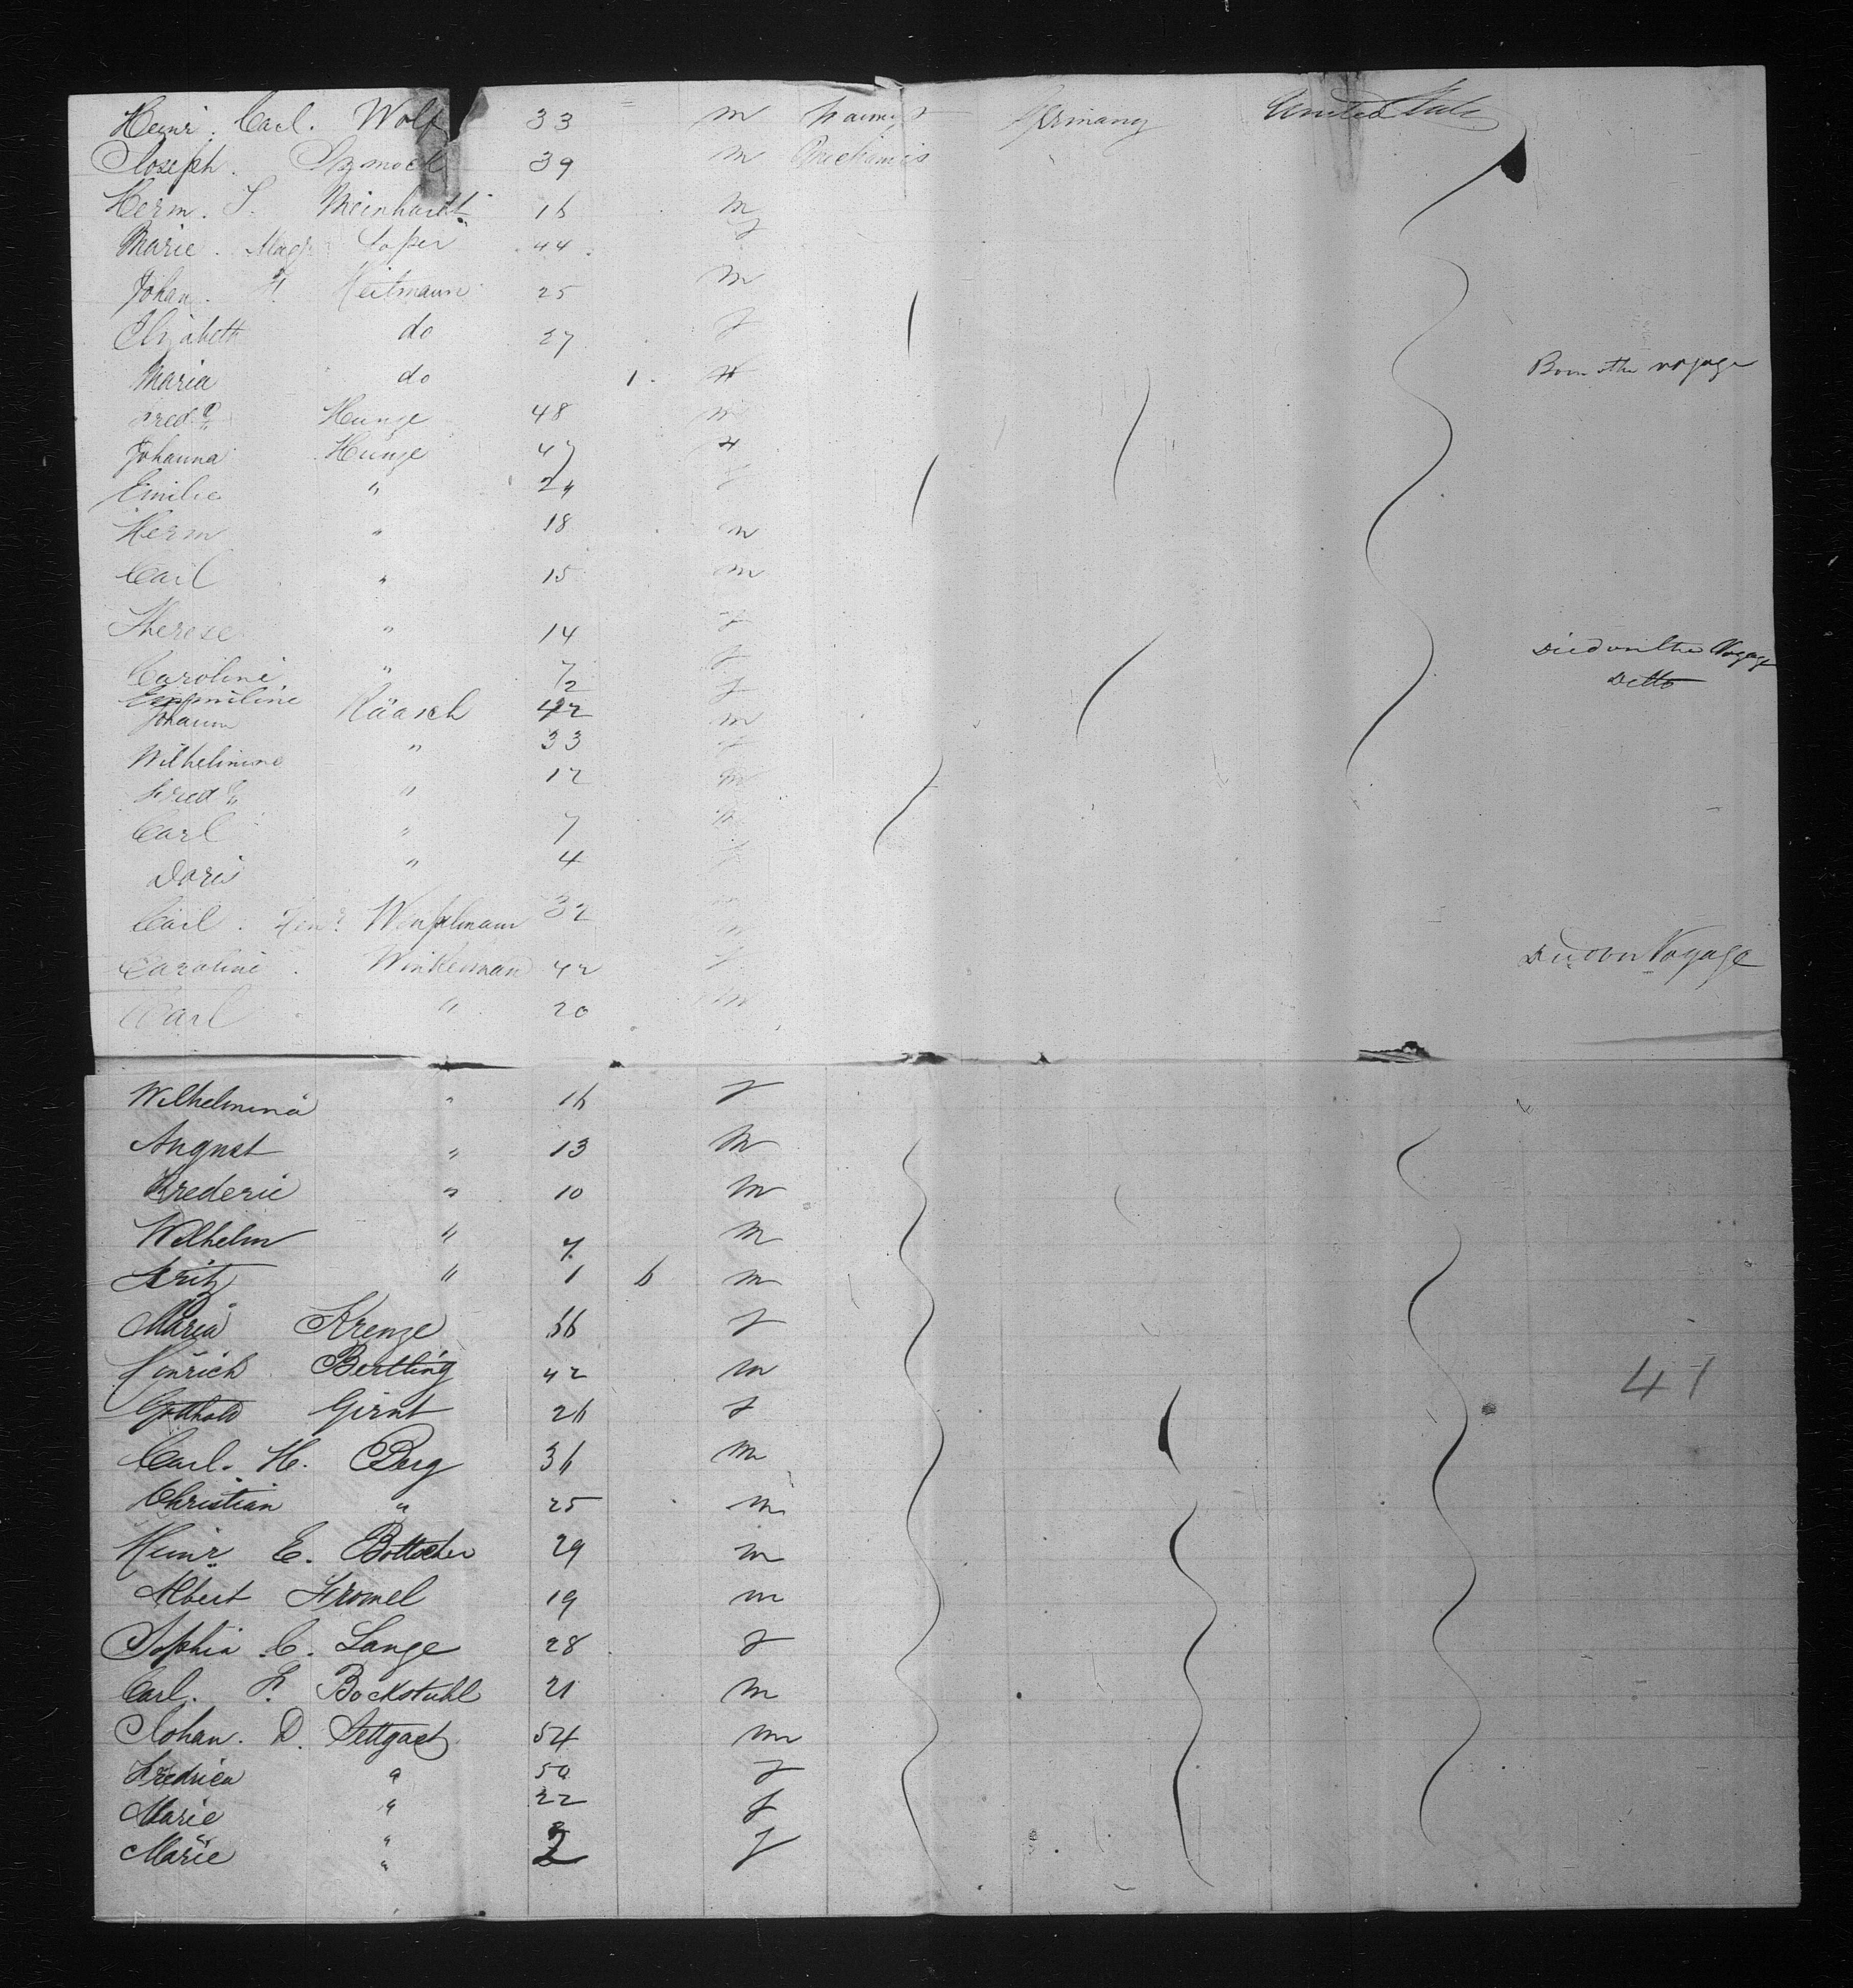 Heinr. Carl. Wolf 33 m Germany United States
Joseph. 39 m Mechanics
Herm. Meinhardt 16 m
Marie. 44 f
Johan. H. Heitmann 25 m
Elizabeth do 27 f
Maria do 1. Born on the voyage
Fred. Hunze 48 m
Johanna Hunze 47 f
Emilie " 24 f
Herm " 18 m
Carl " 15 m
Therese " 14 f Died on the Voyage
Caroline " 7 f Detto
2 f
Johann Räasch 42 m
Wilhelmine " 33 f
Fred. " 12 m
Carl " 7 m
Doris " 4 f
Carl. Henr. 32 m
Caroline. Winkelman 42 f Died on Voyage
Carl " 20 m
Wilhelmina " 16 f
August " 13 m
Frederic " 10 m
Wilhelm " 7. m
Fritz " 1 6 m
Maria Krenze 56 f
Hinrich Bertling 42 m
Gotthold Girnt 26 f
Carl. H. Berg 36 m
Christian " 25 m
Heinr E. Bottscher 29 m
Albert Fromel 19 m
Sophia C. Lange 28 f
Carl. F. Bockstuhl 21 m
Johan. D. Settgast 54 m
Fredrica " 50 f
Marie " 22 f
Marie " 2 f
41